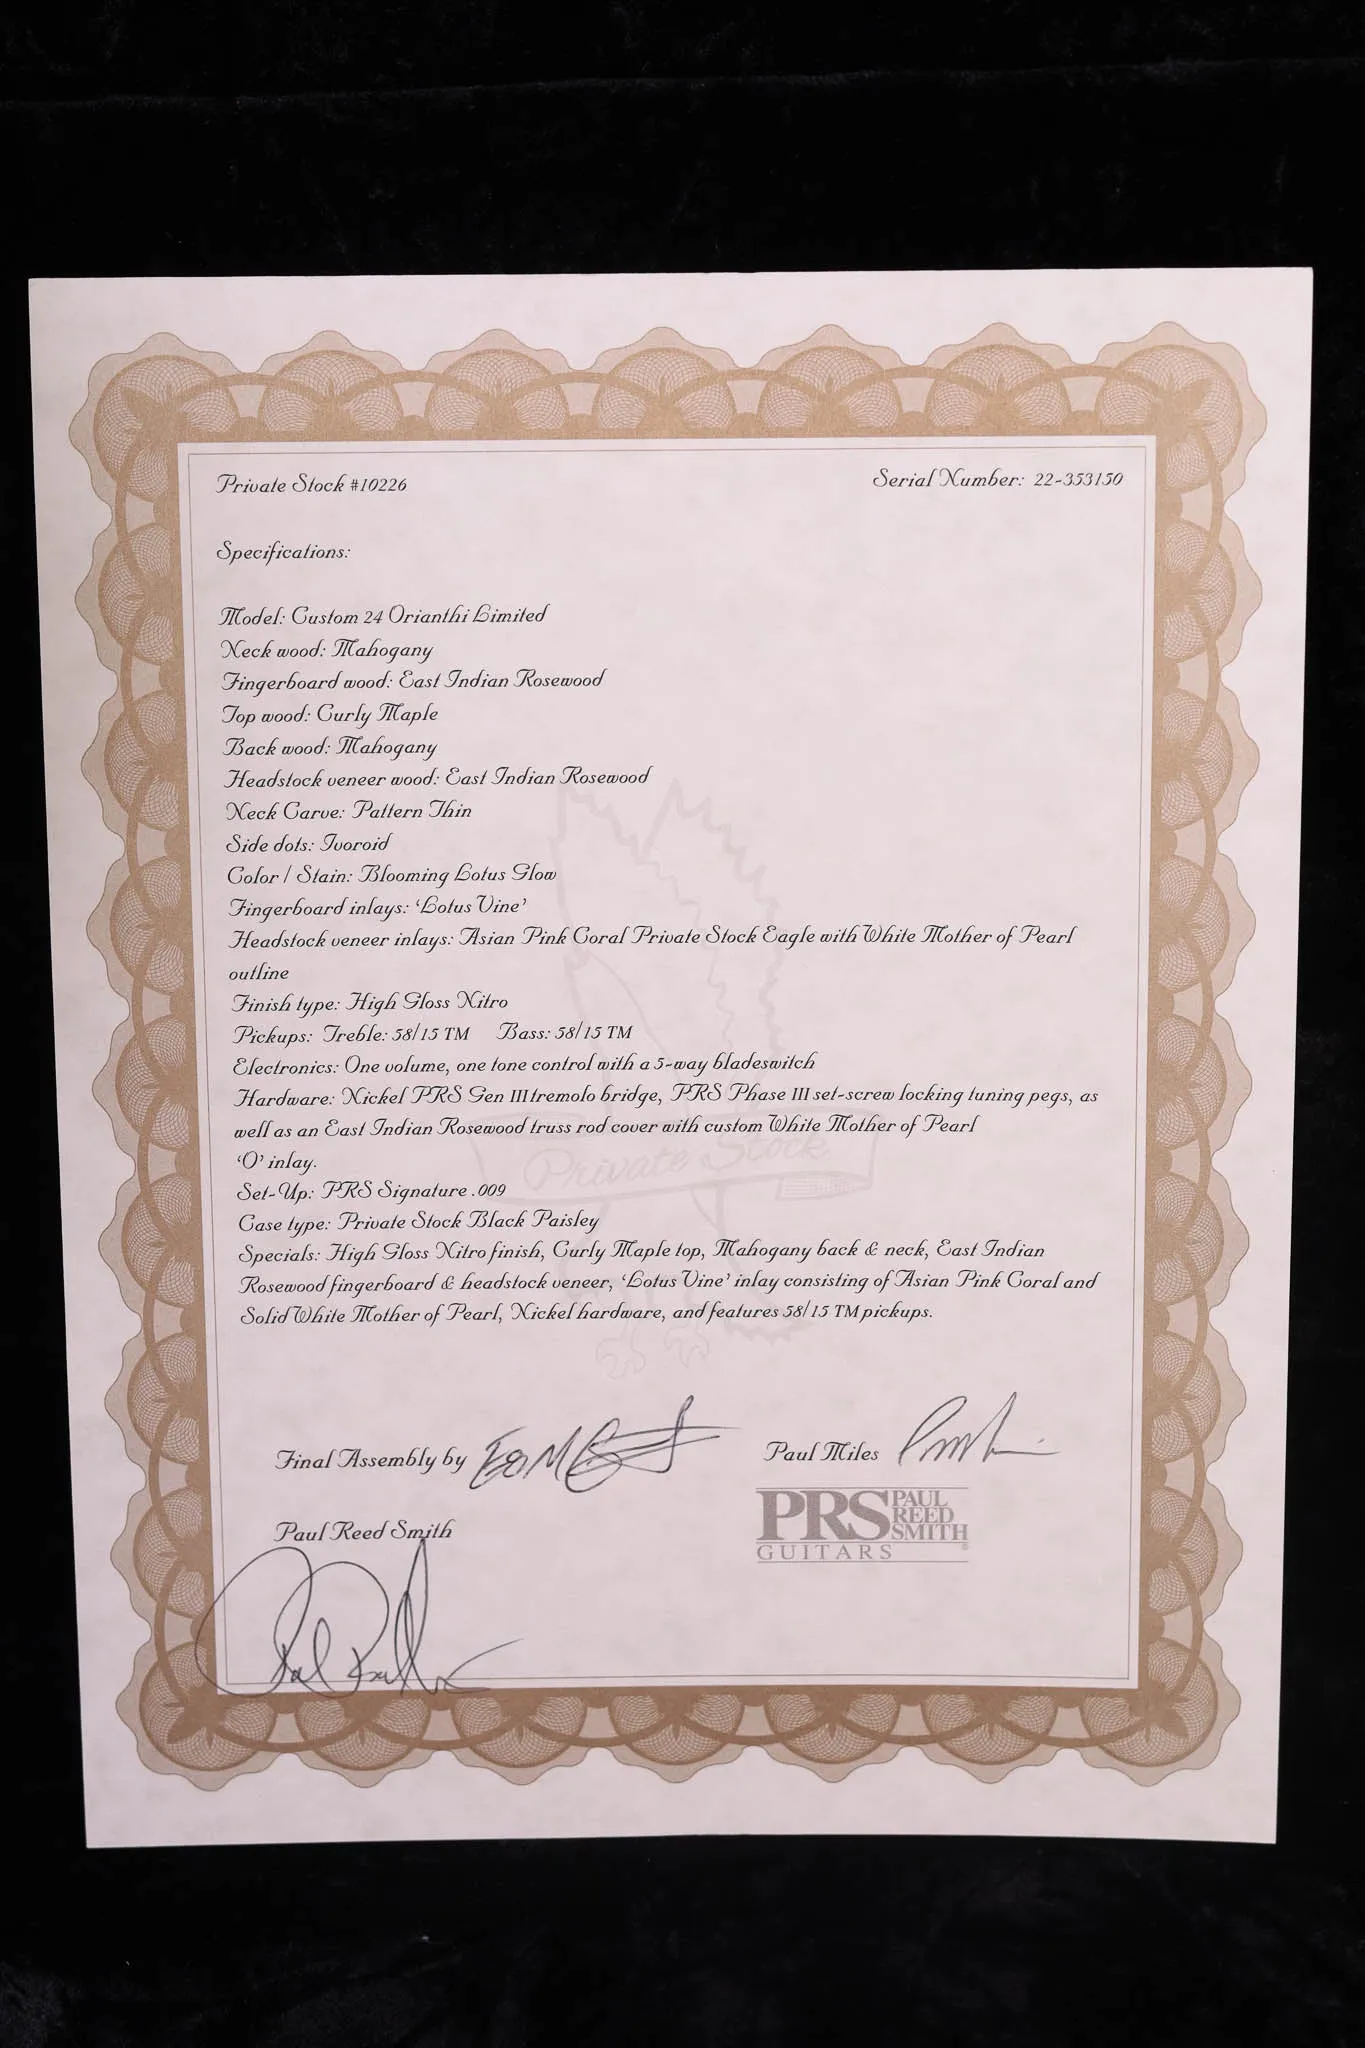 Private Stock #10226
Serial Number: 22-353150
Specifications:
Model: Custom 24 Orianthi Limited
Neck wood: Mahogany
Fingerboard wood: East Indian Rosewood
Top wood: Curly Maple
Back wood: Mahogany
Headstock veneer wood: East Indian Rosewood
Neck Carve: Pattern Thin
Side dots: Ivoroid
Color / Stain: Blooming Lotus Glow
Fingerboard inlays: ‘Lotus Vine’
Headstock veneer inlays: Asian Pink Coral Private Stock Eagle with White Mother of Pearl
outline
Finish type: High Gloss Nitro
Pickups: Treble: 58/15 TM Bass: 58/15 TM
Electronics: One volume, one tone control with a 5-way bladeswitch
Hardware: Nickel PRS Gen III tremolo bridge, PRS Phase III set-screw locking tuning pegs, as
well as an East Indian Rosewood truss rod cover with custom White Mother of Pearl
Private Stock
‘O’ inlay.
Set-Up: PRS Signature .009
Case type: Private Stock Black Paisley
Specials: High Gloss Nitro finish, Curly Maple top, Mahogany back & neck, East Indian
Rosewood fingerboard & headstock veneer, ‘Lotus Vine’ inlay consisting of Asian Pink Coral and
Solid White Mother of Pearl, Nickel hardware, and features 58/15 TM pickups.
Final Assembly by
Paul Miles
PRS PAUL REED SMITH
GUITARS
Paul Reed Smith